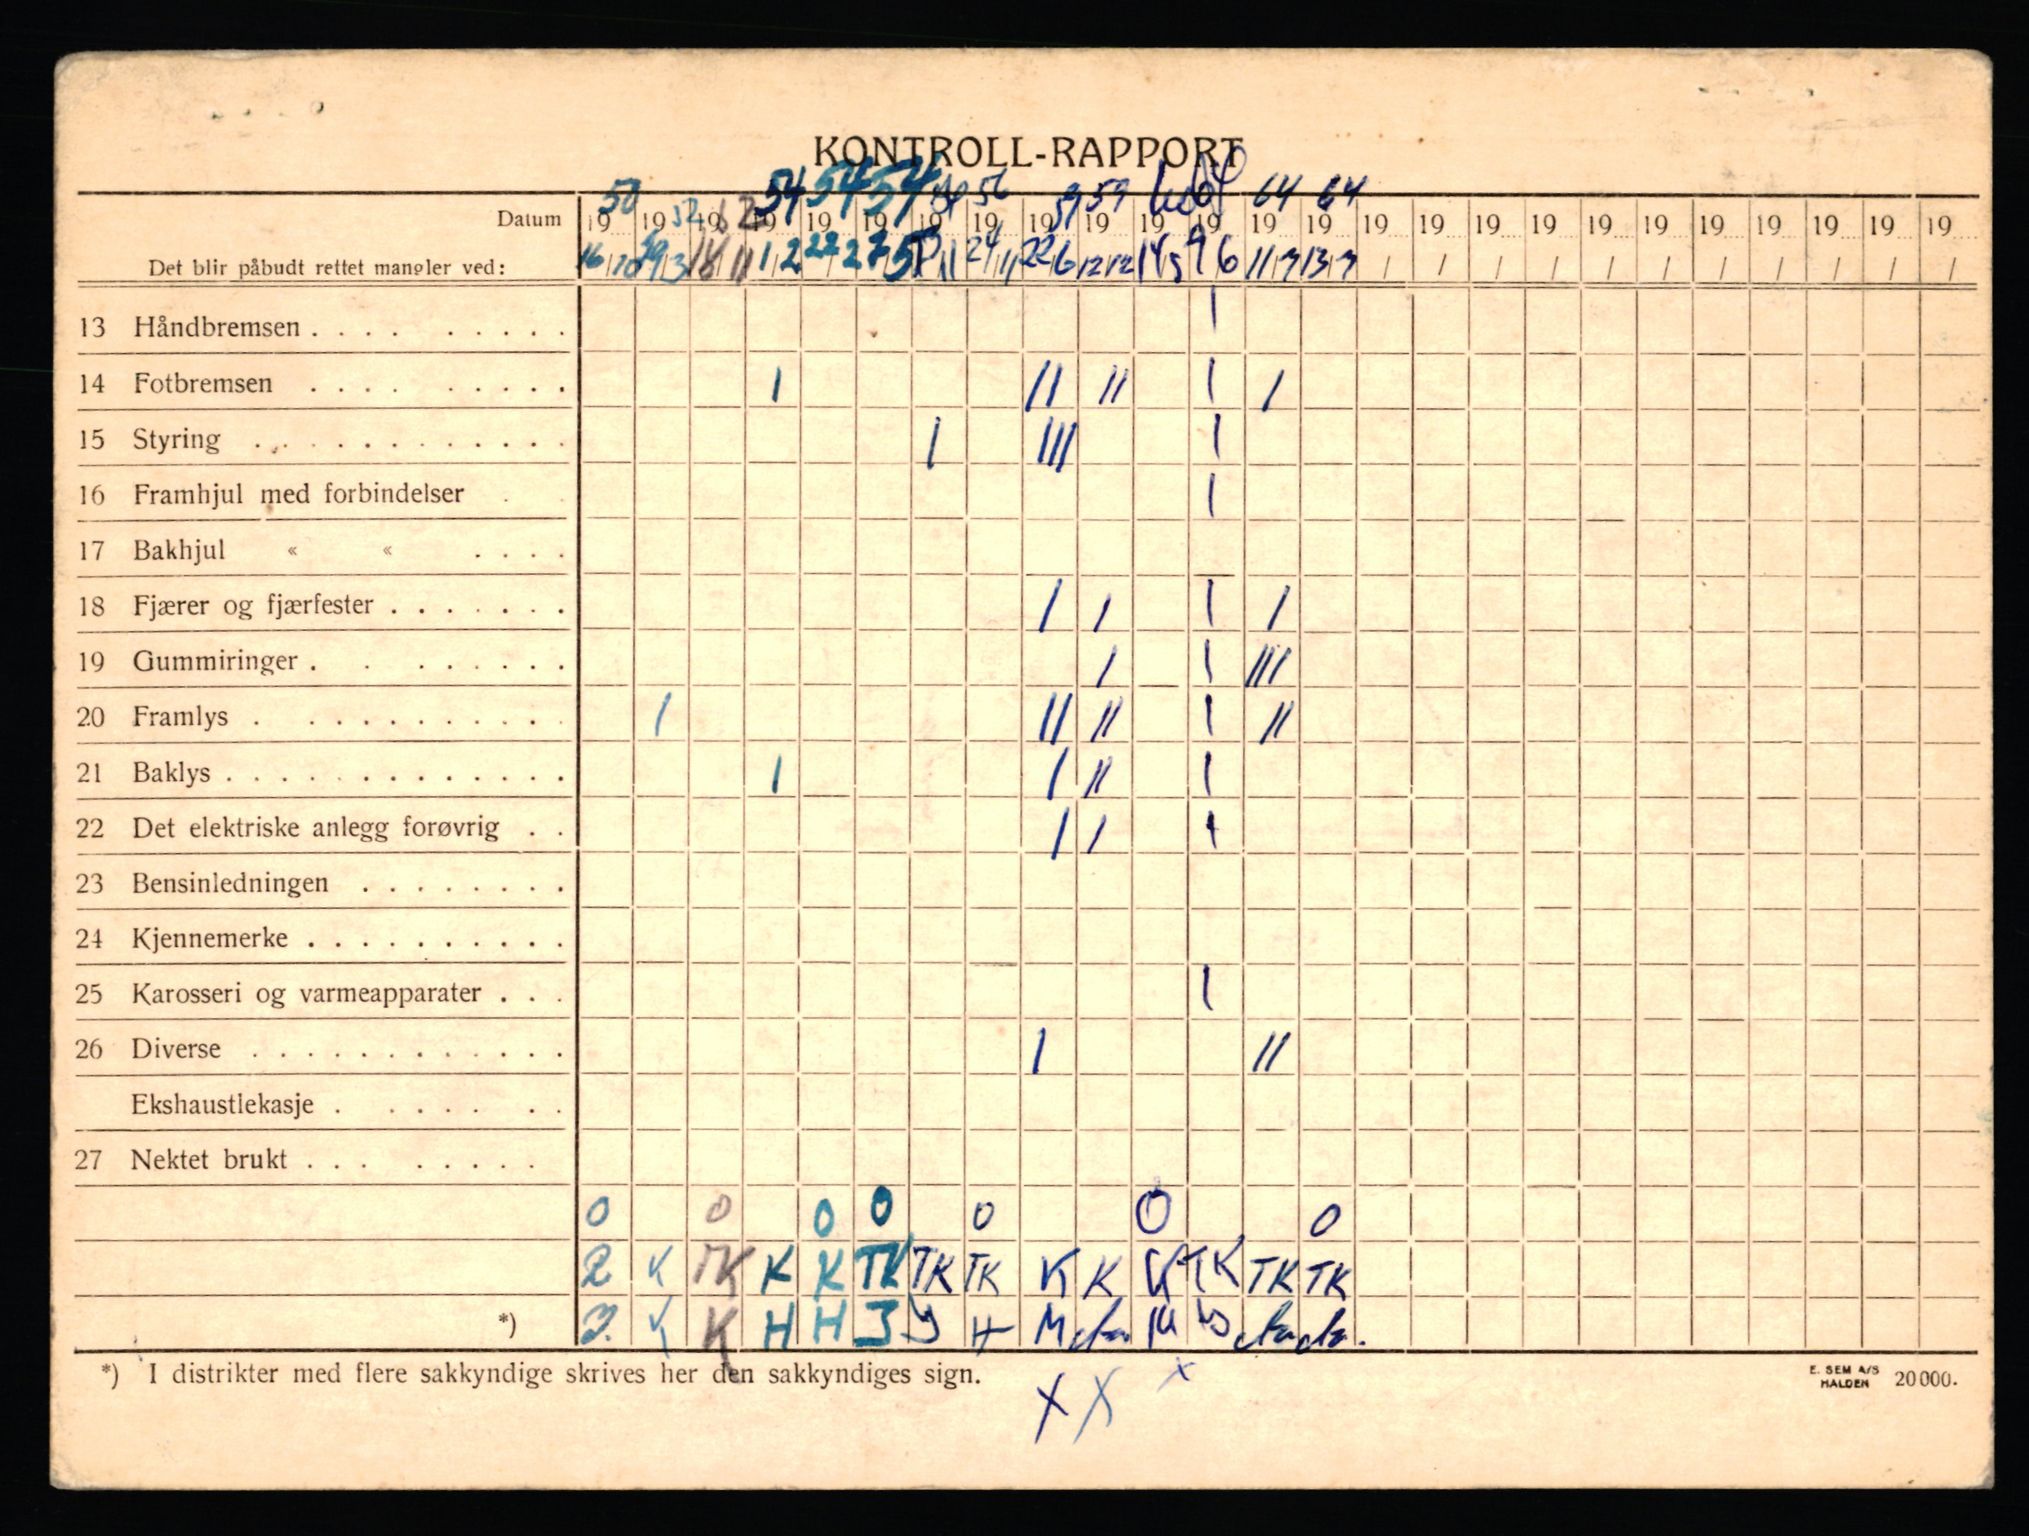 KONTROLL-RAPPORT
50 52 52 54 54 54 54 56 59 59 64 64 64
Datum 19 19 19 19 19 19 19 19 19 19 19 19 19 19 19 19 19 19 19 19 19 19 19 19 19
Det blir påbudt rettet mangler ved: 16/10 29/3 18/11 1/2 22/2 7/5 24/11 22/6 12/12 14/5 9/6 11/7 13/7 / / / / / / / / / / /
13 Håndbremsen . . . . . . . . . I
14 Fotbremsen . . . . . . . . . I II II I I
15 Styring . . . . . . . . . . . . I III I
16 Framhjul med forbindelser . . I
17 Bakhjul « « . . . .
18 Fjærer og fjærfester . . . . . . . I I I I
19 Gummiringer . . . . . . . . I I III
20 Framlys . . . . . . . . . . . I II II I II
21 Baklys . . . . . . . . . . . . . I I II I
22 Det elektriske anlegg forøvrig . . I I I
23 Bensinledningen . . . . . . . .
24 Kjennemerke . . . . . . . . . .
25 Karosseri og varmeapparater . . . I
26 Diverse . . . . . . . . . . . . I II
Ekshaustlekasje . . . . . . .
27 Nektet brukt . . . . . . . .
0 0 0 0 0 0 0
R K TK K K TK TK TK K K K TK TK TK
*) K K H H J H M
*) I distrikter med flere sakkyndige skrives her den sakkyndiges sign.
E. SEM A/S
HALDEN 20 000.
X X x